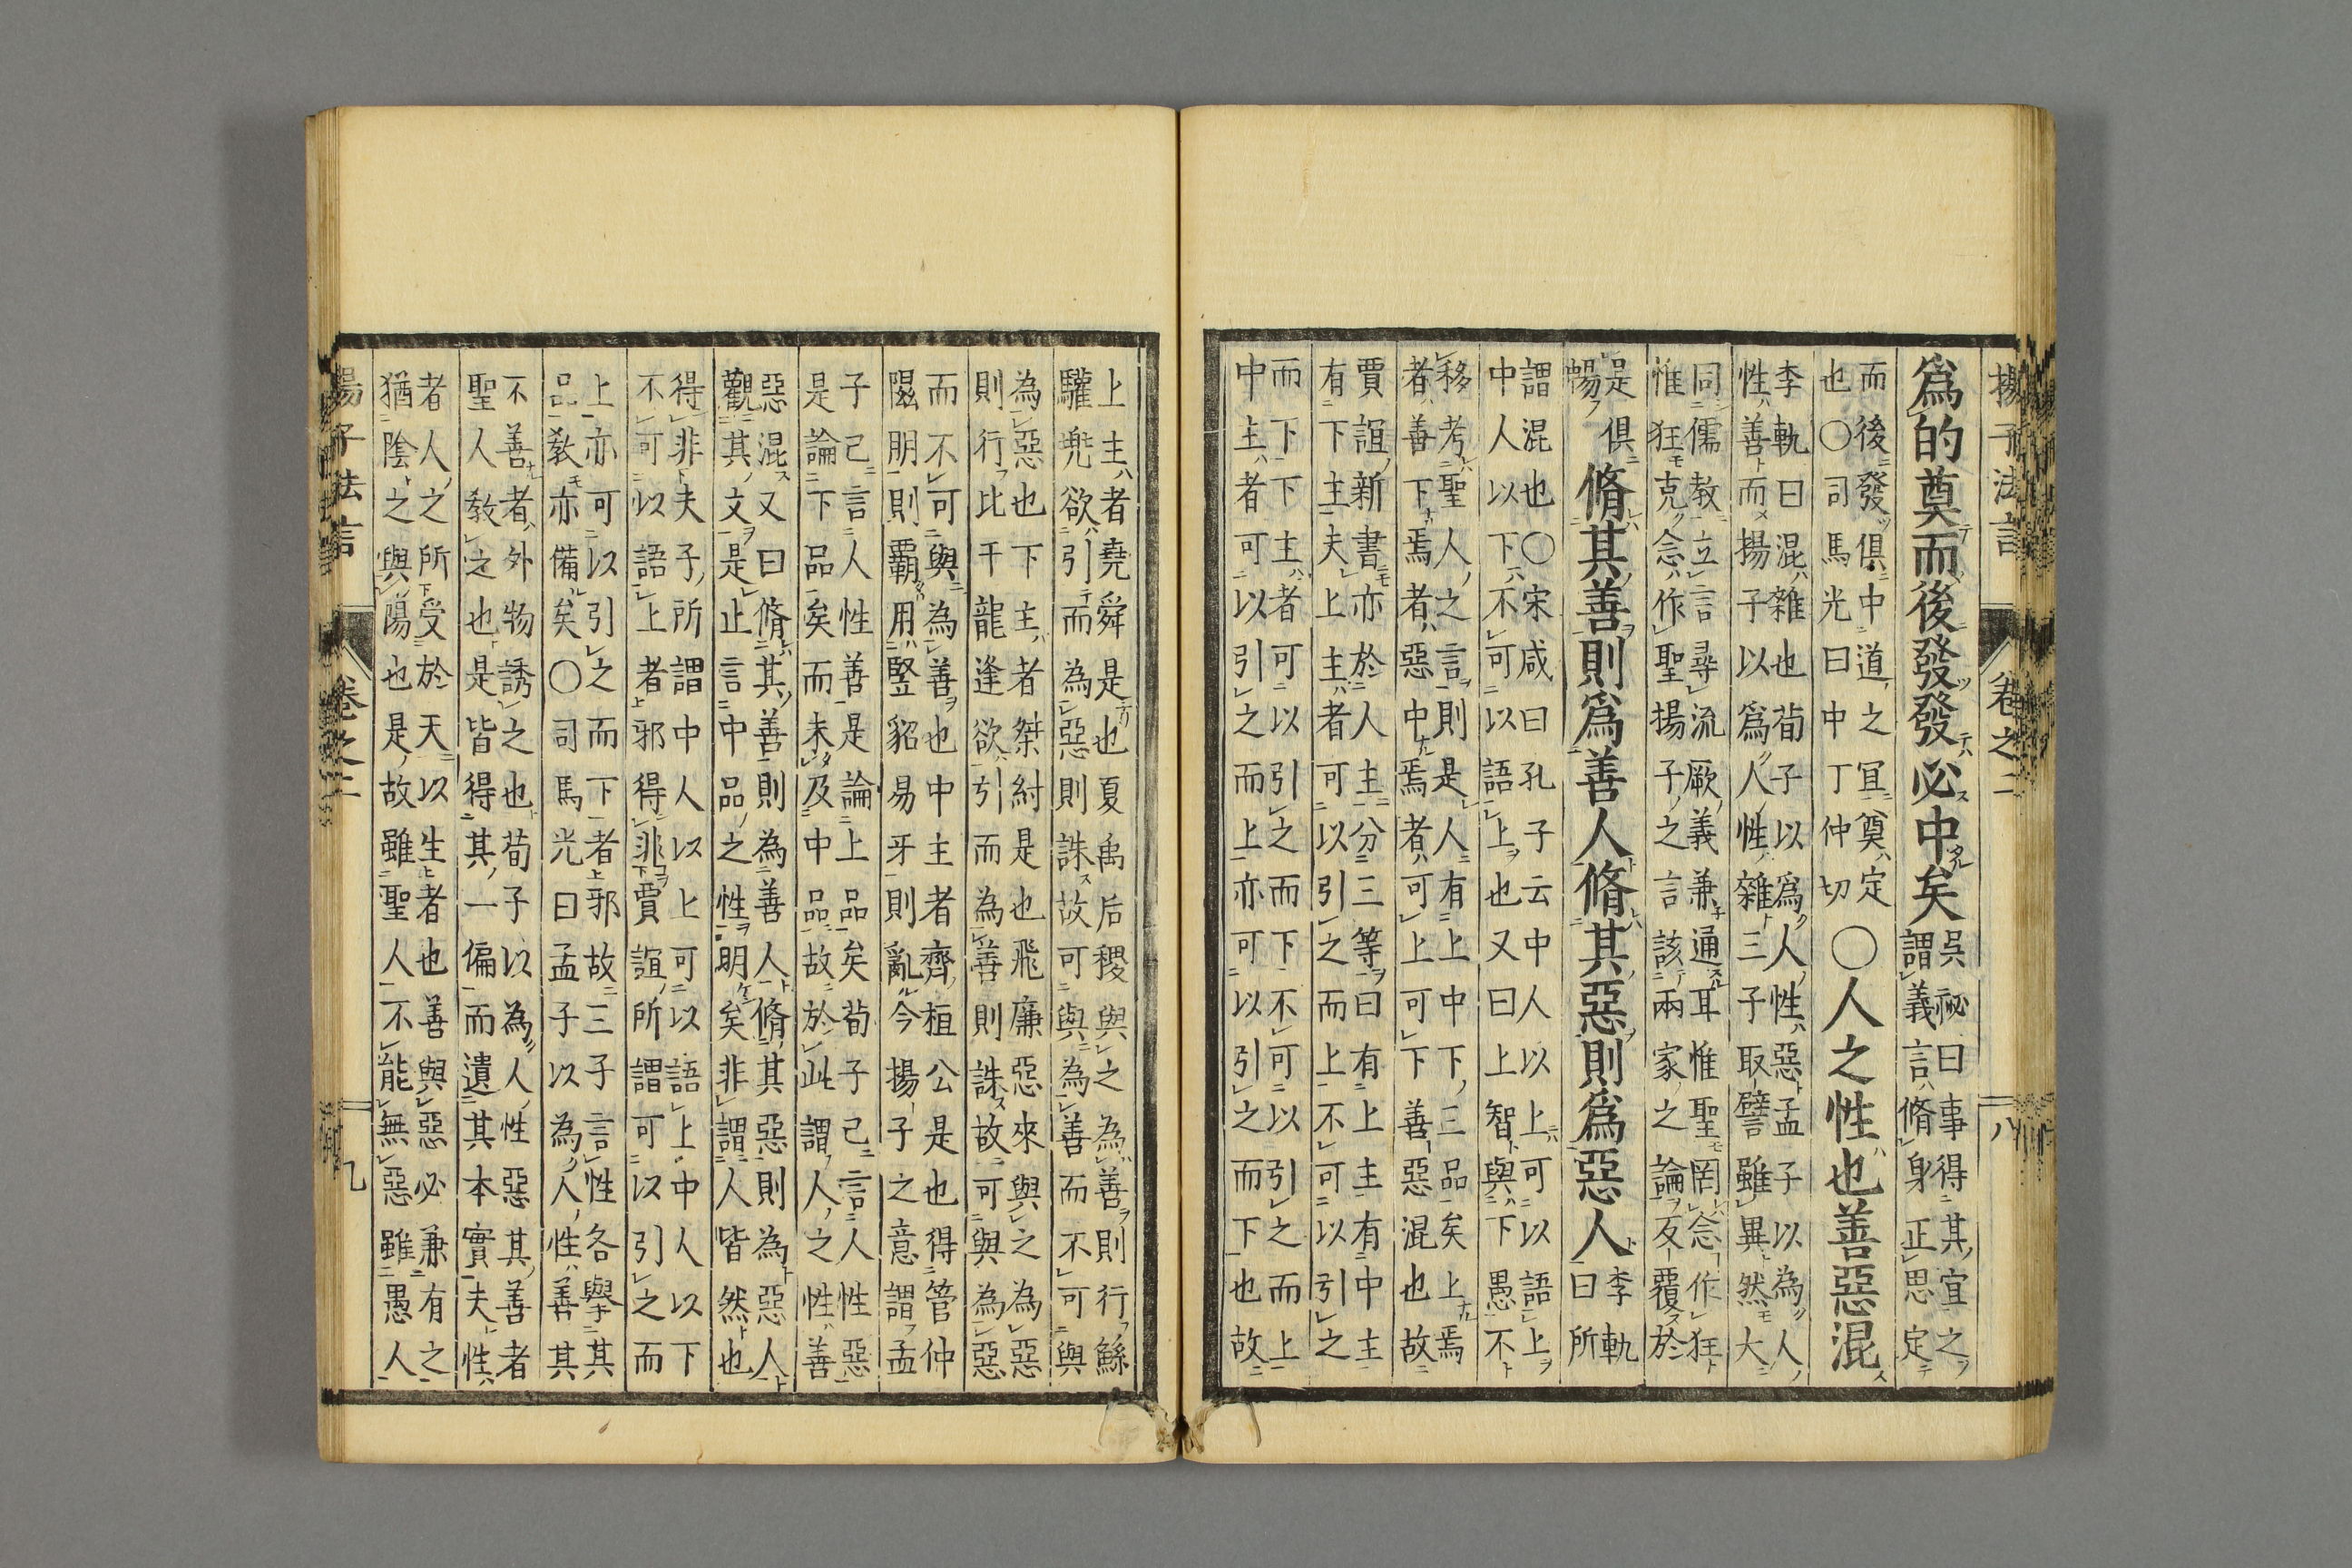 揚子法言 卷之二 八
爲的奠而後發發必中矣
吳祕曰事得其宜之
謂義言脩身正思定
而後發俱中道之宜奠定
也〇司馬光曰中丁仲切
〇人之性也善惡混
李軌曰混雜也荀子以爲人性惡孟子以為人
性善而揚子以爲人性雜三子取譬雖異然大
同儒教立言尋流厥義兼通耳惟聖罔念作狂
惟狂克念作聖揚子之言該兩家之論反覆於
是俱
暢
脩其善則爲善人脩其惡則爲惡人
李軌
曰所
謂混也〇宋咸曰孔子云中人以上可以語上
中人以下不可以語上也又曰上智與下愚不
移考聖人之言則是人有上中下三品矣上焉
者善下焉者惡中焉者可上可下善惡混也故
賈誼新書亦於人主分三等曰有上主有中主
有下主夫上主者可以引之而上不可以引之
而下下主者可以引之而下不可以引之而上
中主者可以引之而上亦可以引之而下也故
上主者堯舜是也夏禹后稷與之為善則行鯀
驩兜欲引而為惡則誅故可與為善而不可與
為惡也下主者桀紂是也飛廉惡來與之為惡
則行比干龍逢欲引而為善則誅故可與為惡
而不可與為善也中主者齊桓公是也得管仲
隰朋則霸用豎貂易牙則亂今揚子之意謂孟
子已言人性善是論上品矣荀子已言人性惡
是論下品矣而未及中品故於此謂人之性善
惡混又曰脩其善則為善人脩其惡則為惡人
觀其文是止言中品之性明矣非謂人皆然也
得非夫子所謂中人以上可以語上中人以下
不可以語上者邪得非賈誼所謂可以引之而
上亦可以引之而下者邪故三子言性各舉其
品教亦備矣〇司馬光曰孟子以為人性善其
不善者外物誘之也荀子以為人性惡其善者
聖人教之也是皆得其一偏而遺其本實夫性
者人之所受於天以生者也善與惡必兼有之
猶陰之與陽也是故雖聖人不能無惡雖愚人
揚子法言 卷之二 九